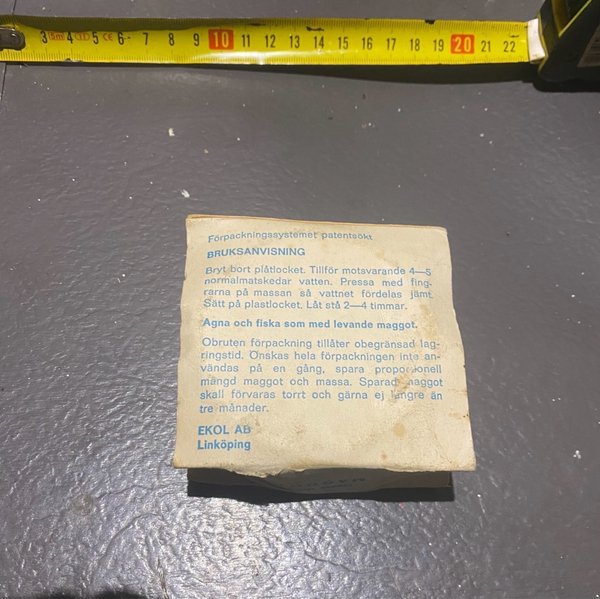 3 5m 4 II 5 CE 6 7 8 9 10 11 12 13 14 15 16 17 18 19 20 21 22
Förpackningssystemet patentsökt
BRUKSANVISNING
Bryt bort plåtlocket. Tillför motsvarande 4—5
normalmatskedar vatten. Pressa med fing-
rarna på massan så vattnet fördelas jämt.
Sätt på plastlocket. Låt stå 2—4 timmar.
Agna och fiska som med levande maggot.
Obruten förpackning tillåter obegränsad lag-
ringstid. Önskas hela förpackningen inte an-
vändas på en gång, spara proportionell
mängd maggot och massa. Sparad maggot
skall förvaras torrt och gärna ej längre än
tre månader.
EKOL AB
Linköping